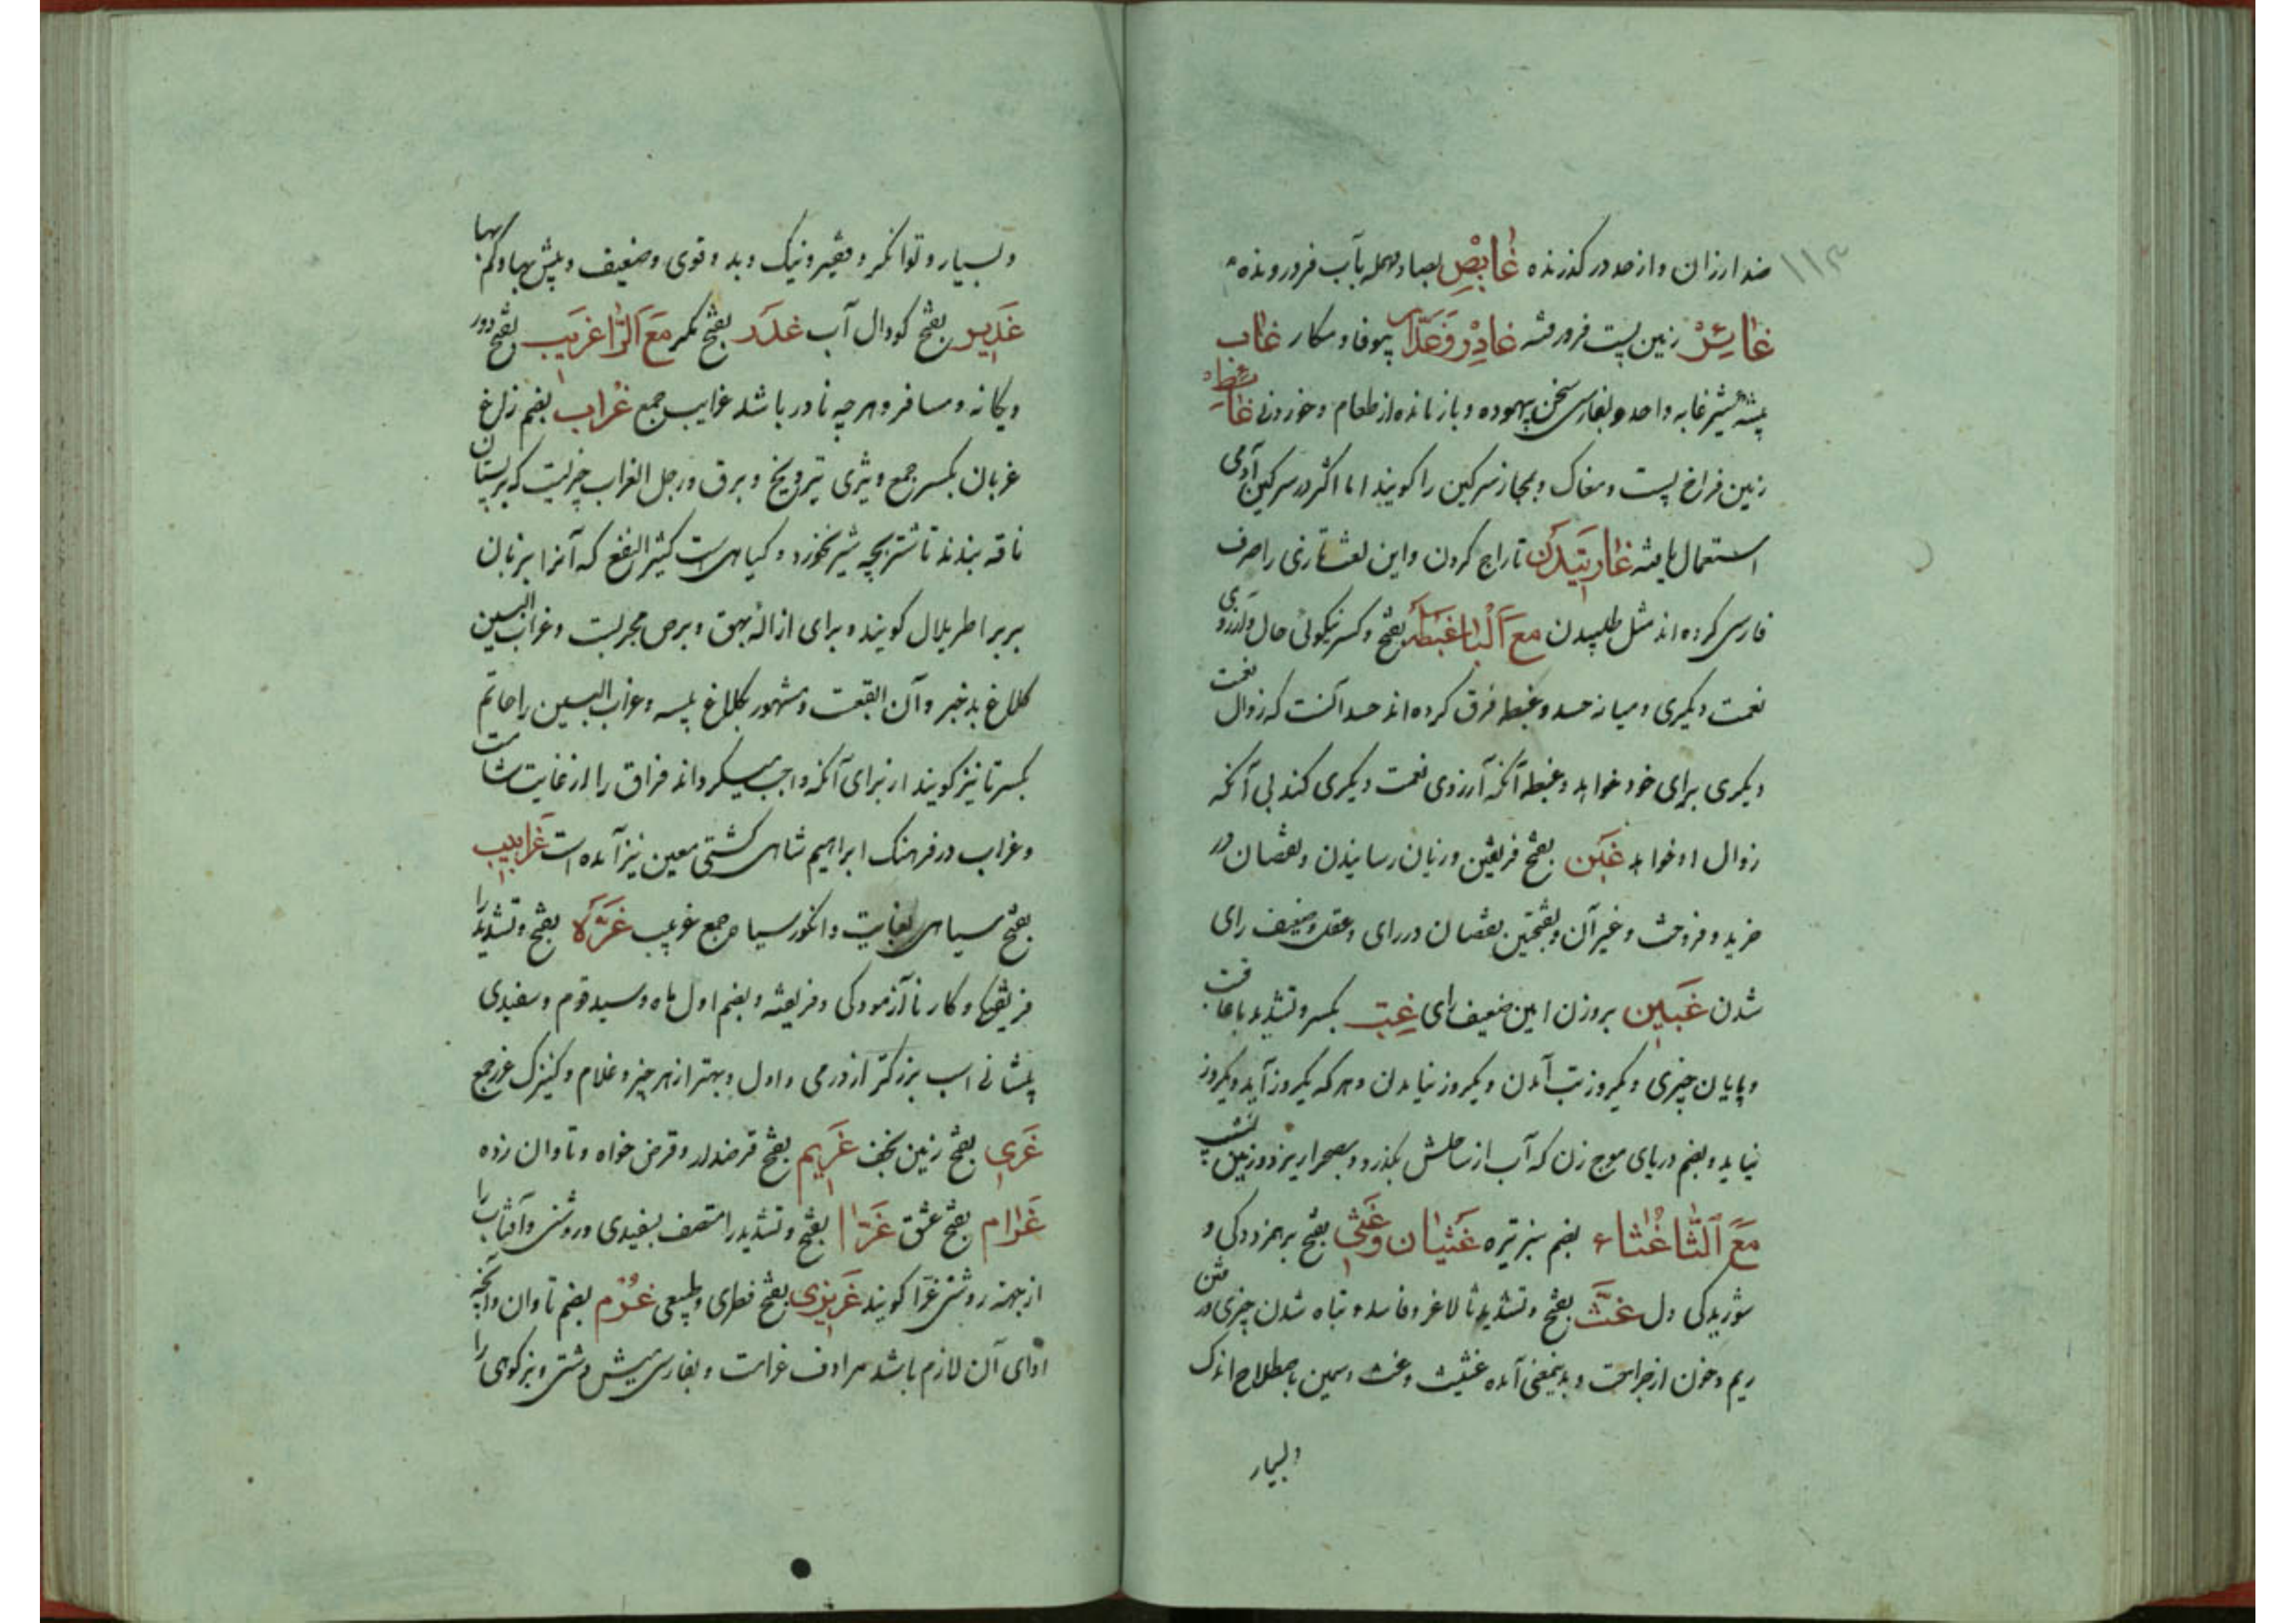 ۱۱۳
ضد ارزان و از حد در گذرنده غایص بصاد مهمله بآب فرو رونده
غائر زمین پست فرو رفته غادر و غدار بیوفا و مکار غاب
بیشه شیر غابه واحد و بفارسی سخن بیهوده و باز مانده از طعام و خوردنی غائط
زمین فراخ پست و مغاک و بمجاز سرکین را کویند اما اکثر در سرکین آدمی
استعمال یافته غارتیدن تاراج کردن و این لغت تازی را صرف
فارسی کرده اند مثل طلبیدن مع البا غبطه بفتح و کسر نیکوئی حال و آرزوی
نعمت دیکری و میانه حسد و غبطه فرق کرده اند حسد آنست که زوال نعمت
دیکری برای خود خواهد و غبطه آنکه آرزوی نعمت دیکری کند بی آنکه
زوال او خواهد غبن بفتح فریفتن و زیان رسانیدن و نقصان در
خرید و فروخت و غیر آن و بفتحتین نقصان در رای و عقل و ضعیف رای
شدن غبین بروزن امین ضعیف رای غب بکسر و تشدید با عاقبت
و پایان چیزی و یکروز تب آمدن و یکروز نیامدن و هر که یکروز آید و یکروز
نیاید و بضم دریای موج زن که آب از ساحلش بکذرد و بصحرا ریزد و زمین نشیب
مع الثا غثاء بضم سبز تیره غثیان و غثی بفتح برهم زدگی و
شوریدکی دل غث بفتح و تشدید ثا لاغر و فاسد و تباه شدن چیزی در
ریم و خون از جراحت و بدینمعنی آمده غثیث و غث و سمین باصطلاح اندک
و بسیار
و بسیار و توانکر و فقیر و نیک و بد و قوی و ضعیف و بیش بها و کم بها
غدیر بفتح کودال آب غدد بفتح مع الرا غریب بفتح دور
و یکانه و مسافر و هر چه نادر باشد غرایب جمع غراب بضم زاغ
غربان بکسر جمع و تیزی تبر و یخ و برق و رجل الغراب چیزیست که بر پستان
ناقه بندند تا شتر بچه شیر نخورد و کیاهی است کثیر النفع که آنرا بزبان
بربر اطریلال کویند و برای ازاله بهق و برص مجربست و غراب البین
کلاغ بد خبر و آن ابقعست و مشهور بکلاغ پیسه و غراب البین را حاتم
بکسر تا نیز کویند از برای آنکه واجب میکرداند فراق را از غایت شامت
و غراب در فرهنک ابراهیم شاهی کشتی معین نیز آمده است غرابیب
بفتح سیاهی بغایت و انکور سیاه جمع غربیب غره بفتح و تشدید را
فریفتکی و کار ناآزمودکی و فریفته و بضم اول ماه و سید قوم و سفیدی
پیشانی اسب بزرکتر از درمی و اول و بهتر از هر چیز و غلام و کنیزک غرر جمع
غری بفتح زمین غریم بفتح قرضدار و قرض خواه و تاوان زده
غرام بفتح عشق غرا بفتح و تشدید را متصف بسفیدی و روشنی و آفتاب را
از جهة روشنی غرا کویند غریزی بفتح فطری و طبیعی غرم بضم تاوان و آنچه
ادای آن لازم باشد مرادف غرامت و بفارسی میش دشتی و بز کوهی را